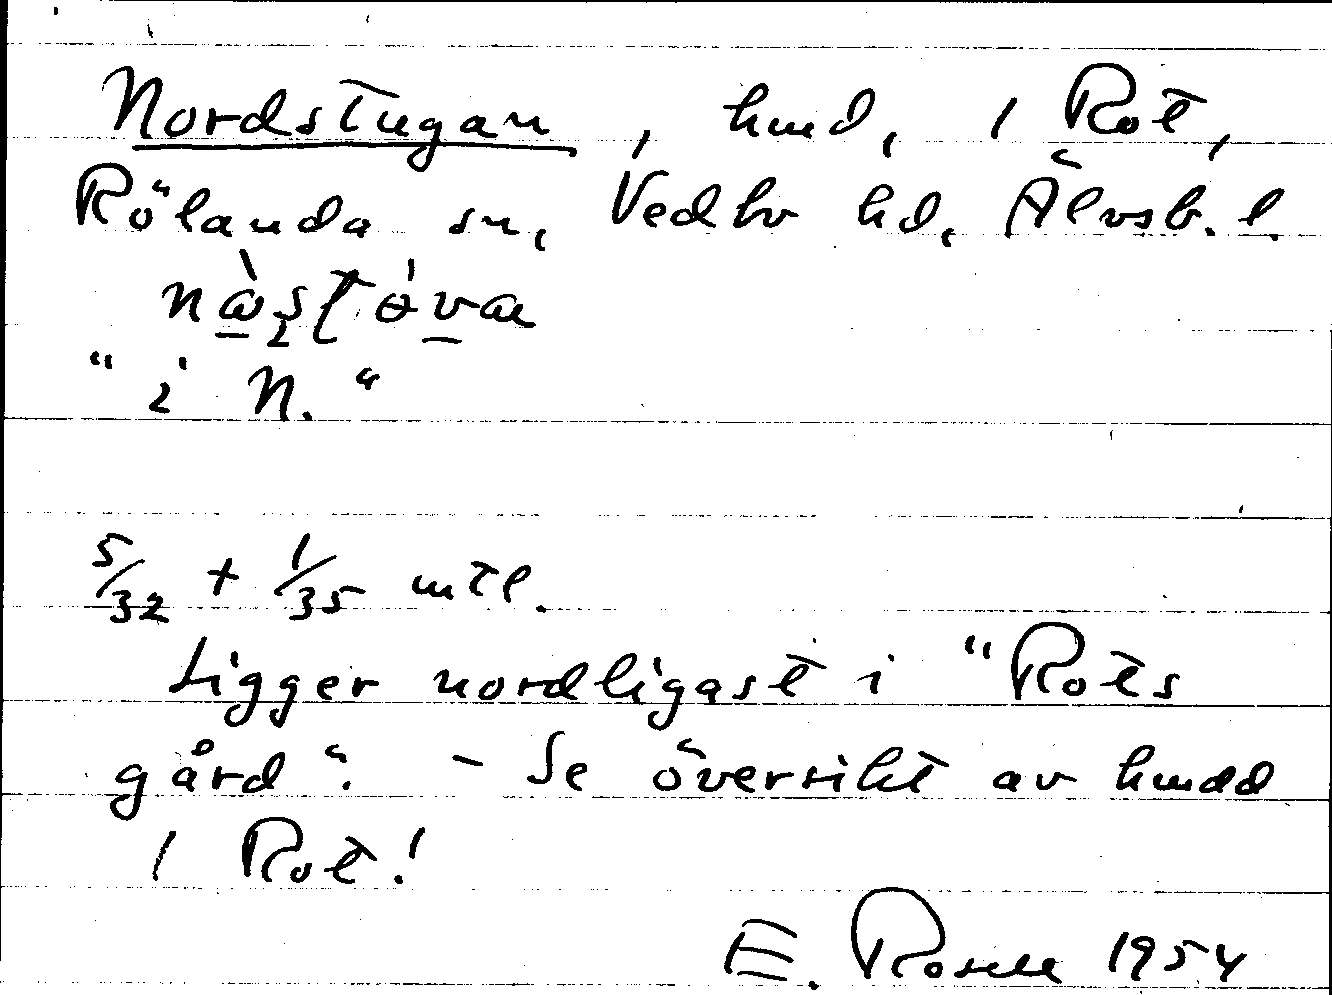 Nordstugan, hmd, 1 Rot,
Rölanda sn, Vedbo hd, Älvsb. l.
"i N."
5/32 + 1/35 mtl.
Ligger nordligast i "Rots
gård". - Se översikt av hmdd
1 Rot!
E. Rosell 1954